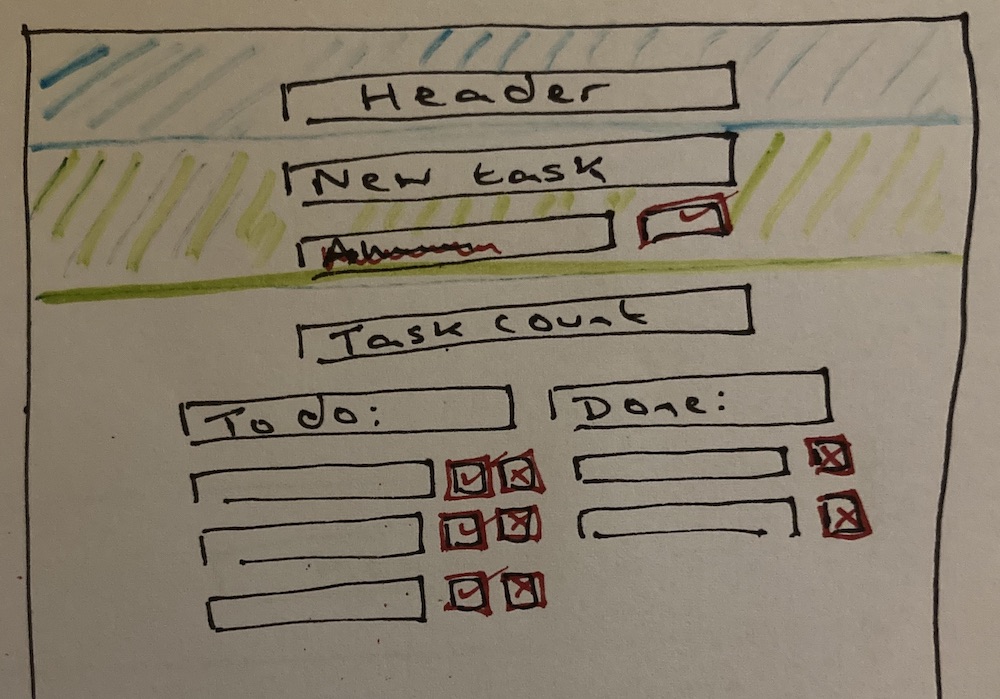 Header
New task
Task count
To do:
Done: